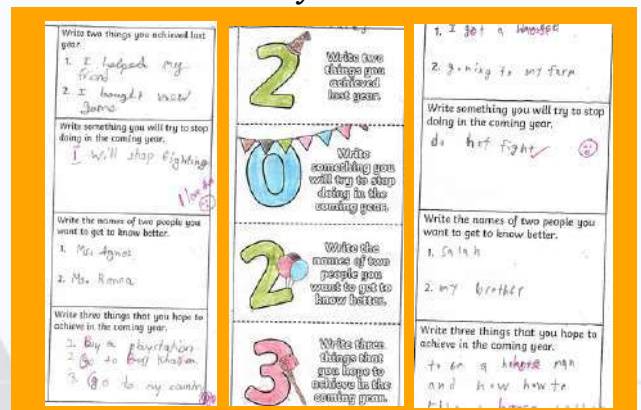 Write two things you achieved last
year.
1. I helped my
friend
2. I bought
game
Write something you will try to stop
doing in the coming year.
I will stop fighting
I love
Write the names of two people you
want to get to know better.
1. Ms. Agnes
2. Ms. Ranna
Write three things that you hope to
achieve in the coming year.
1. Buy a playstation
2. Go to
3. Go to my country
2
Write two
things you
achieved
last year.
0
Write
something you
will try to stop
doing in the
coming year.
2
Write the
names of two
people you
want to get to
know better.
3
Write three
things that
you hope to
achieve in the
coming year.
1. I got a
2. goming to my farm
Write something you will try to stop
doing in the coming year.
do not fight
Write the names of two people you
want to get to know better.
1. Salah
2. my brother
Write three things that you hope to
achieve in the coming year.
to on a
and how how to